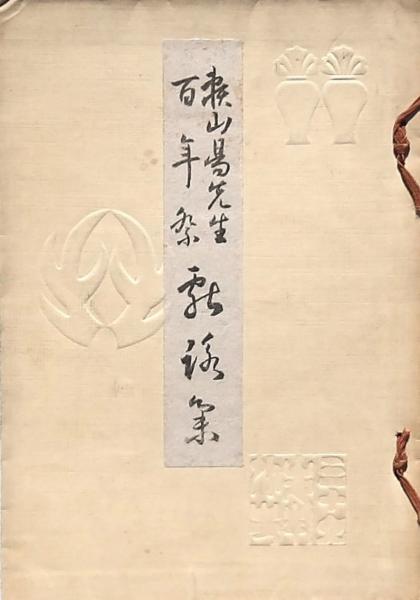 頼山陽先生
百年祭
献詠集